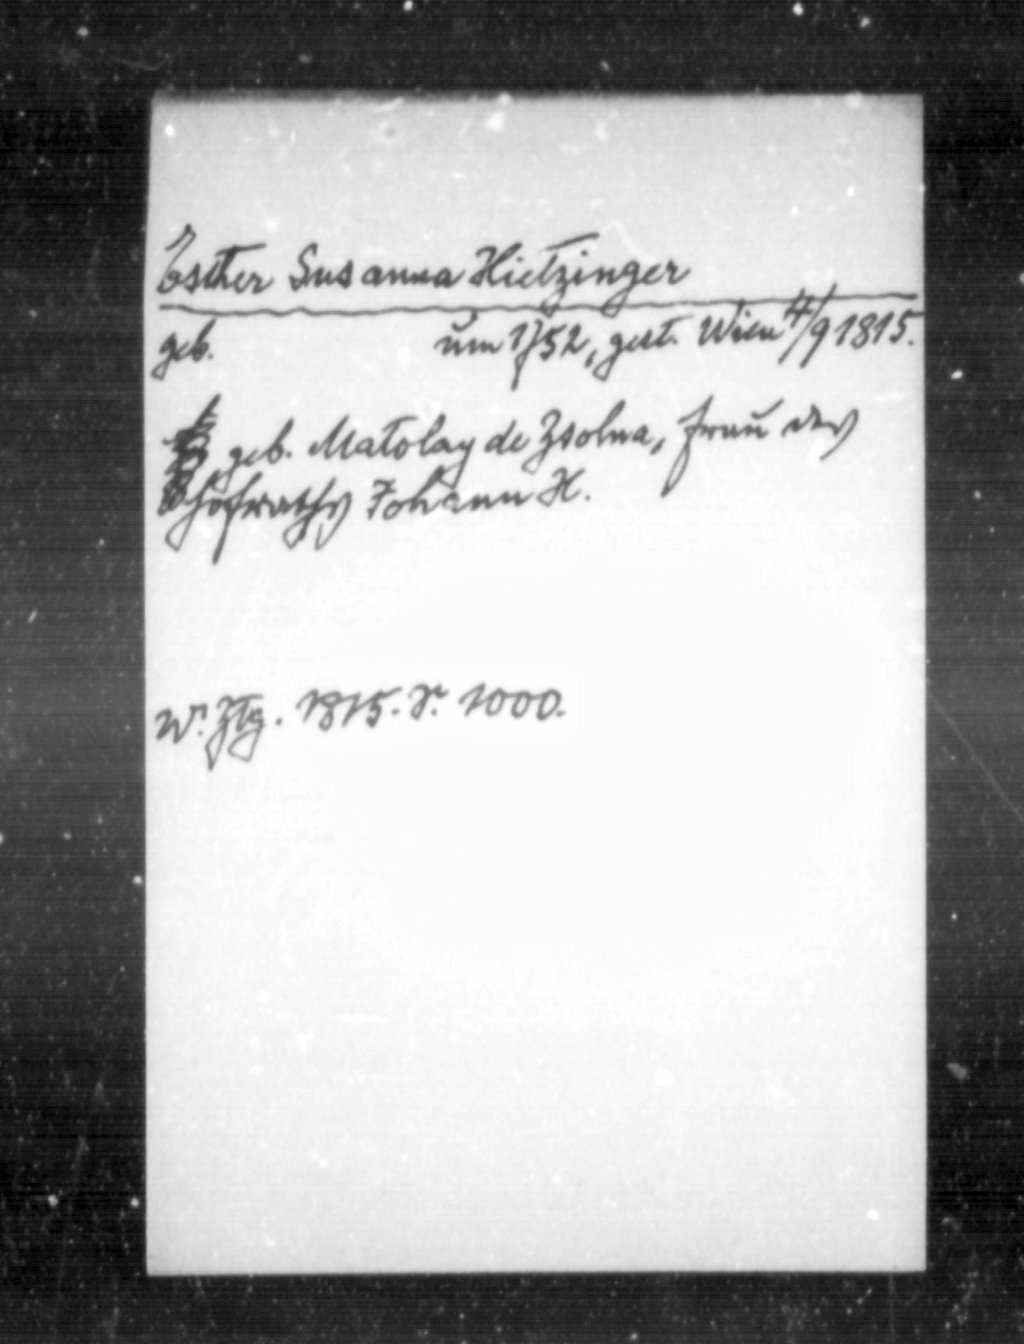 Esther Susanna Hietzinger
geb. um 1752, gest. Wien 4/9 1815.
geb. Matolay de Zsolna, Frau des
Hofraths Johann H.
Wr. Ztg. 1815. S. 1000.